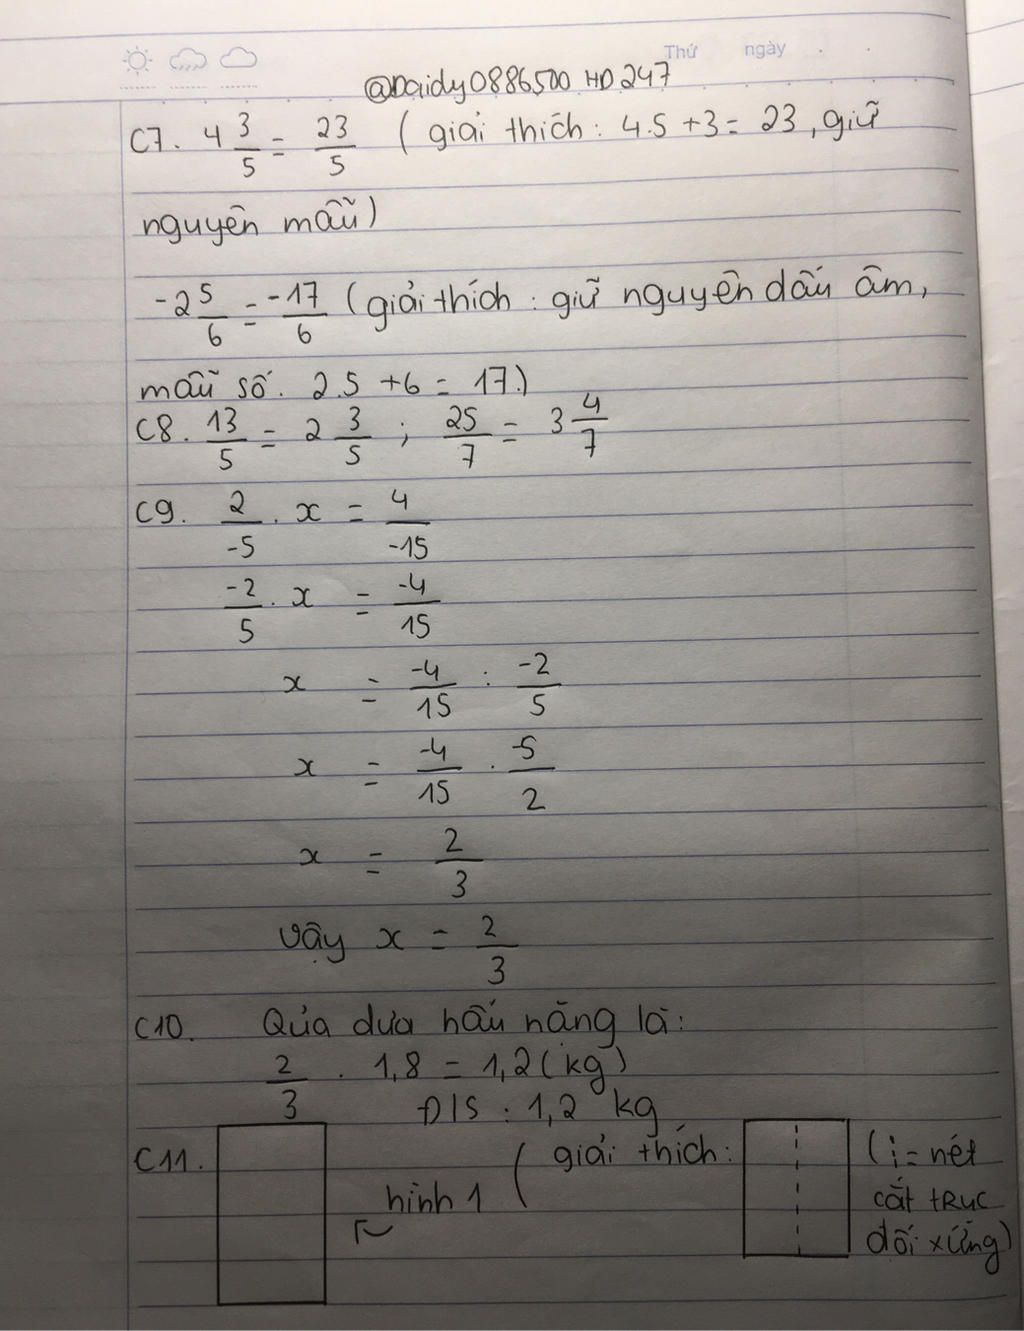 Thứ ngày
@Daidy0886500 HD247
C7. 4 3/5 = 23/5 ( giải thích: 4.5 +3 = 23, giữ
nguyên mẫu)
-2 5/6 = -17/6 (giải thích: giữ nguyên dấu âm,
mẫu số. 2.5 +6 = 17.)
C8. 13/5 = 2 3/5 ; 25/7 = 3 4/7
C9. 2/-5 . x = 4/-15
-2/5 . x = -4/15
x = -4/15 : -2/5
x = -4/15 . -5/2
x = 2/3
Vậy x = 2/3
C10. Qủa dưa hấu nặng là:
2/3 . 1,8 = 1,2 (kg)
Đ/S : 1,2 kg
C11. hình 1 ( giải thích: (¦ = nét
cắt trục
đối xứng)